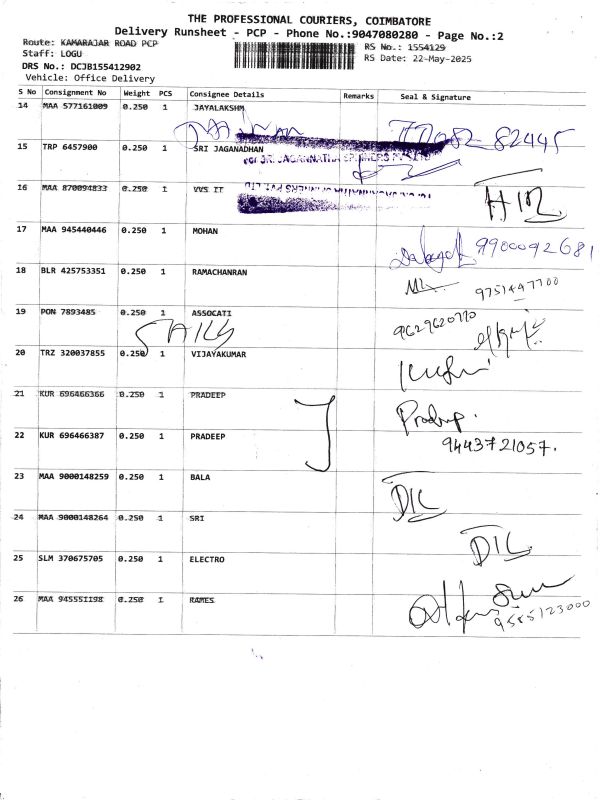 THE PROFESSIONAL COURIERS, COIMBATORE
Delivery Runsheet - PCP - Phone No.:9047080280 - Page No.:2
Route: KAMARAJAR ROAD PCP
RS No.: 1554129
Staff: LOGU
RS Date: 22-May-2025
DRS No.: DCJB155412902
Vehicle: Office Delivery
S No Consignment No Weight PCS Consignee Details Remarks Seal & Signature
14 MAA 577161009 0.250 1 JAYALAKSHM
82445
15 TRP 6457900 0.250 1 SRI JAGANADHAN
For SRI JAGANNATHA SPINNERS PVT LTD
16 MAA 870094833 0.250 1 VVS IT
17 MAA 945440446 0.250 1 MOHAN
9900092681
18 BLR 425753351 0.250 1 RAMACHANRAN
9751447700
19 PON 7893485 0.250 1 ASSOCATI
9629620770
20 TRZ 320037855 0.250 1 VIJAYAKUMAR
21 KUR 696466366 0.250 1 PRADEEP
Pradeep.
22 KUR 696466387 0.250 1 PRADEEP
9443721057.
23 MAA 9000148259 0.250 1 BALA
24 MAA 9000148264 0.250 1 SRI
25 SLM 370675705 0.250 1 ELECTRO
26 MAA 945551198 0.250 1 RAMES
9585123000